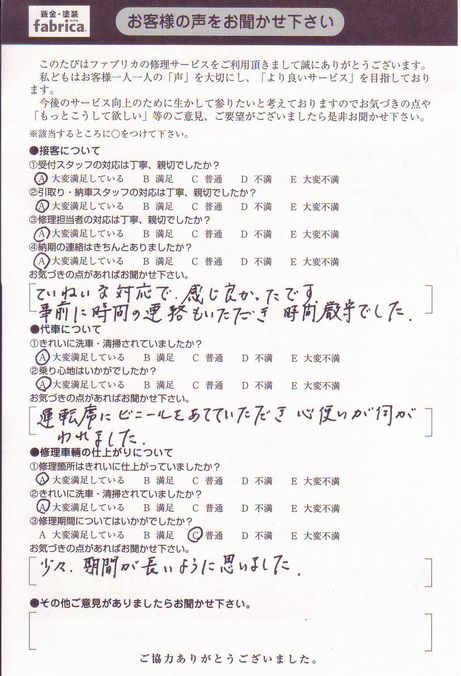 鈑金・塗装
fabrica.
お客様の声をお聞かせ下さい
このたびはファブリカの修理サービスをご利用頂きまして誠にありがとうございます。
私どもはお客様一人一人の「声」を大切にし、「より良いサービス」を目指しており
ます。
今後のサービス向上のために生かして参りたいと考えておりますのでお気づきの点や
「もっとこうして欲しい」等のご意見、ご要望がございましたら是非お聞かせ下さい。
※該当するところに〇をつけて下さい。
●接客について
①受付スタッフの対応は丁寧、親切でしたか?
A 大変満足している B 満足 C 普通 D 不満 E 大変不満
②引取り・納車スタッフの対応は丁寧、親切でしたか?
A 大変満足している B 満足 C 普通 D 不満 E 大変不満
③修理担当者の対応は丁寧、親切でしたか?
A 大変満足している B 満足 C 普通 D 不満 E 大変不満
④納期の連絡はきちんとありましたか?
A 大変満足している B 満足 C 普通 D 不満 E 大変不満
お気づきの点があればお聞かせ下さい。
ていねいな対応で、感じ良かったです
事前に時間の連絡もいただき 時間厳守でした.
●代車について
①きれいに洗車・清掃されていましたか?
A 大変満足している B 満足 C 普通 D 不満 E 大変不満
②乗り心地はいかがでしたか?
A 大変満足している B 満足 C 普通 D 不満 E 大変不満
お気づきの点があればお聞かせ下さい。
運転席にビニールをあてていただき 心使いが伺が
われました.
●修理車輌の仕上がりについて
①修理箇所はきれいに仕上がっていましたか?
A 大変満足している B 満足 C 普通 D 不満 E 大変不満
②きれいに洗車・清掃されていましたか?
A 大変満足している B 満足 C 普通 D 不満 E 大変不満
③修理期間についてはいかがでしたか?
A 大変満足している B 満足 C 普通 D 不満 E 大変不満
お気づきの点があればお聞かせ下さい。
少々、期間が長いように思いました.
●その他ご意見がありましたらお聞かせ下さい。
ご協力ありがとうございました。